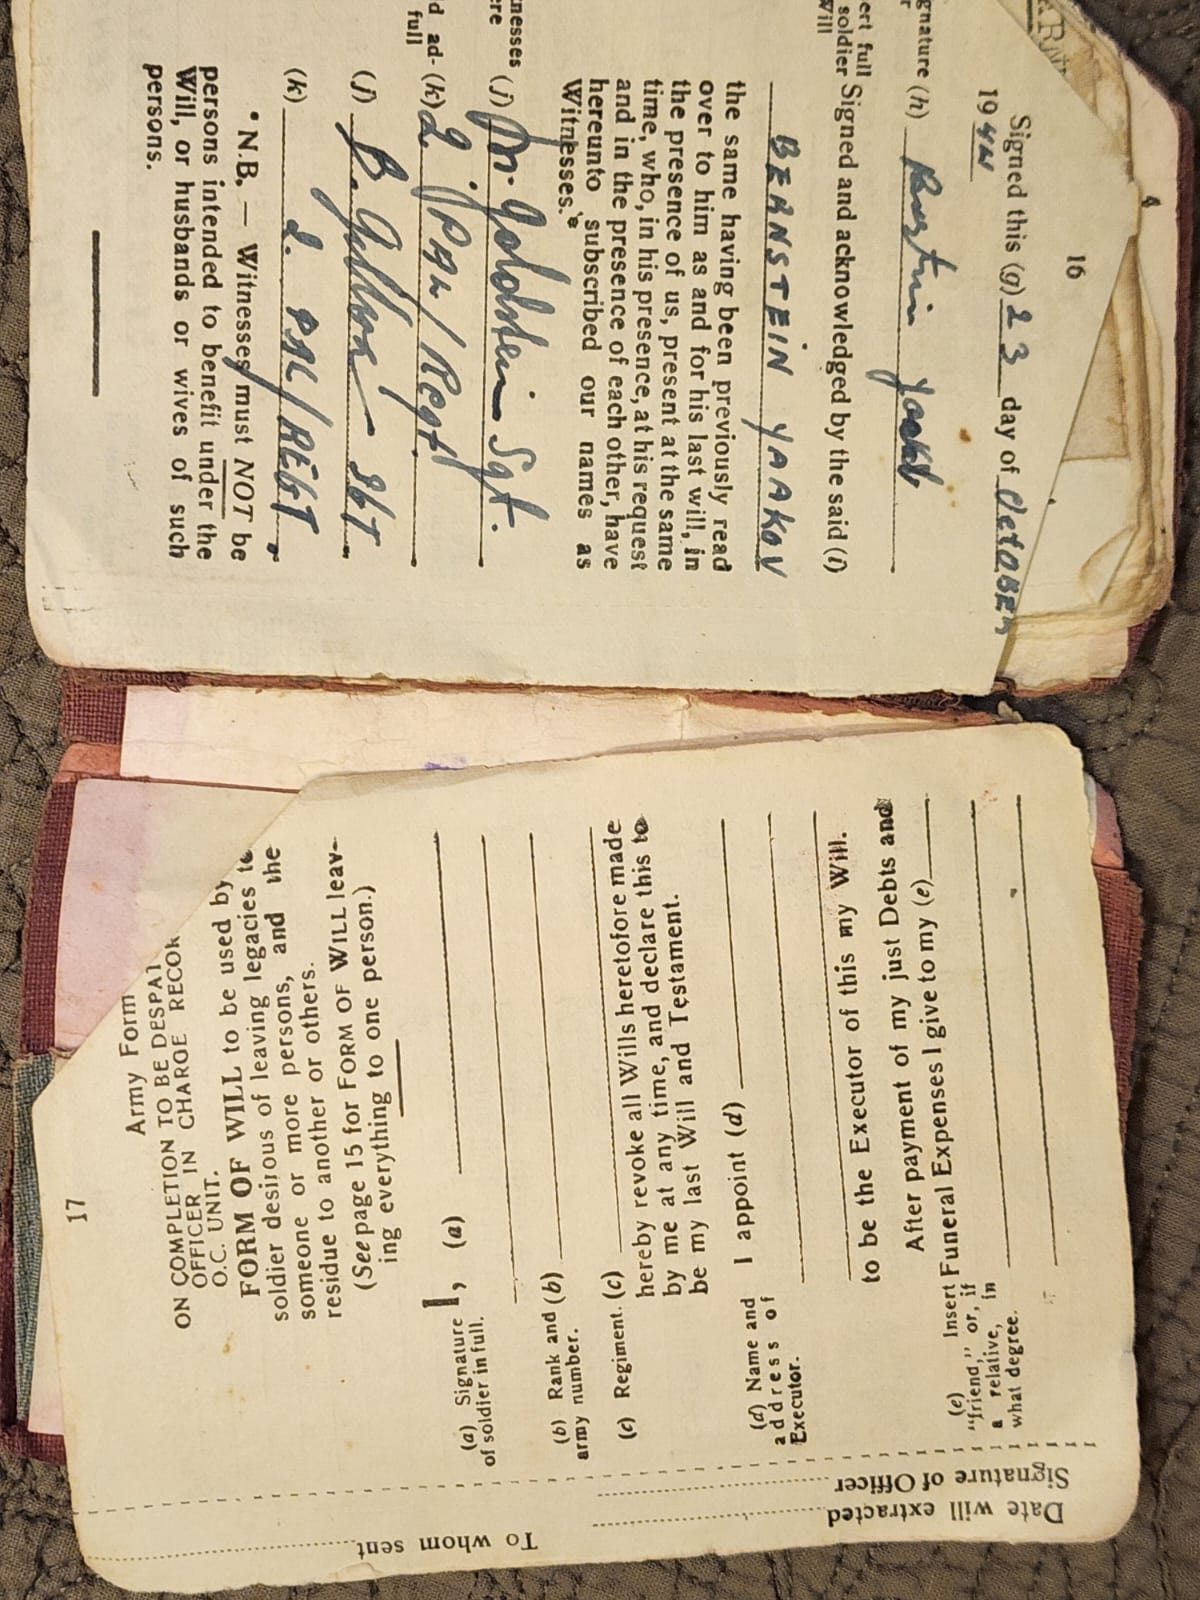 16
Signed this (g) 23 day of OCTOBER
19 44
gnature (h) Bernstein Yaakov
ert full
soldier Signed and acknowledged by the said (i)
Will
BERNSTEIN YAAKOV
the same having been previously read
over to him as and for his last will, in
the presence of us, present at the same
time, who, in his presence, at his request
and in the presence of each other, have
hereunto subscribed our names as
Witnesses.*
nesses (j) M. Goldstein Sgt.
ere
d ad- (k) 2. PAL/Regt.
full
(j) B. SGT.
(k) 2. PAL/REGT.
* N.B. — Witnesses must NOT be
persons intended to benefit under the
Will, or husbands or wives of such
persons.
17
Army Form
ON COMPLETION TO BE DESPAT
OFFICER IN CHARGE RECOR
O.C. UNIT.
FORM OF WILL to be used by
soldier desirous of leaving legacies to
someone or more persons, and the
residue to another or others.
(See page 15 for FORM OF WILL leav-
ing everything to one person.)
(a) Signature I, (a)
of soldier in full.
(b) Rank and (b)
army number.
(c) Regiment. (c)
hereby revoke all Wills heretofore made
by me at any time, and declare this to
be my last Will and Testament.
(d) Name and I appoint (d)
address of
Executor.
to be the Executor of this my Will.
After payment of my just Debts and
(e) Insert Funeral Expenses I give to my (e)
"friend," or, if
a relative, in
what degree.
Signature of Officer
Date will extracted
To whom sent